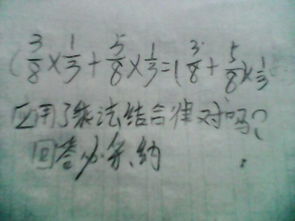 (3/8×1/3+5/8×1/3=(3/8+5/8)×1/3
应用了乘法结合律对吗?
回答必采纳